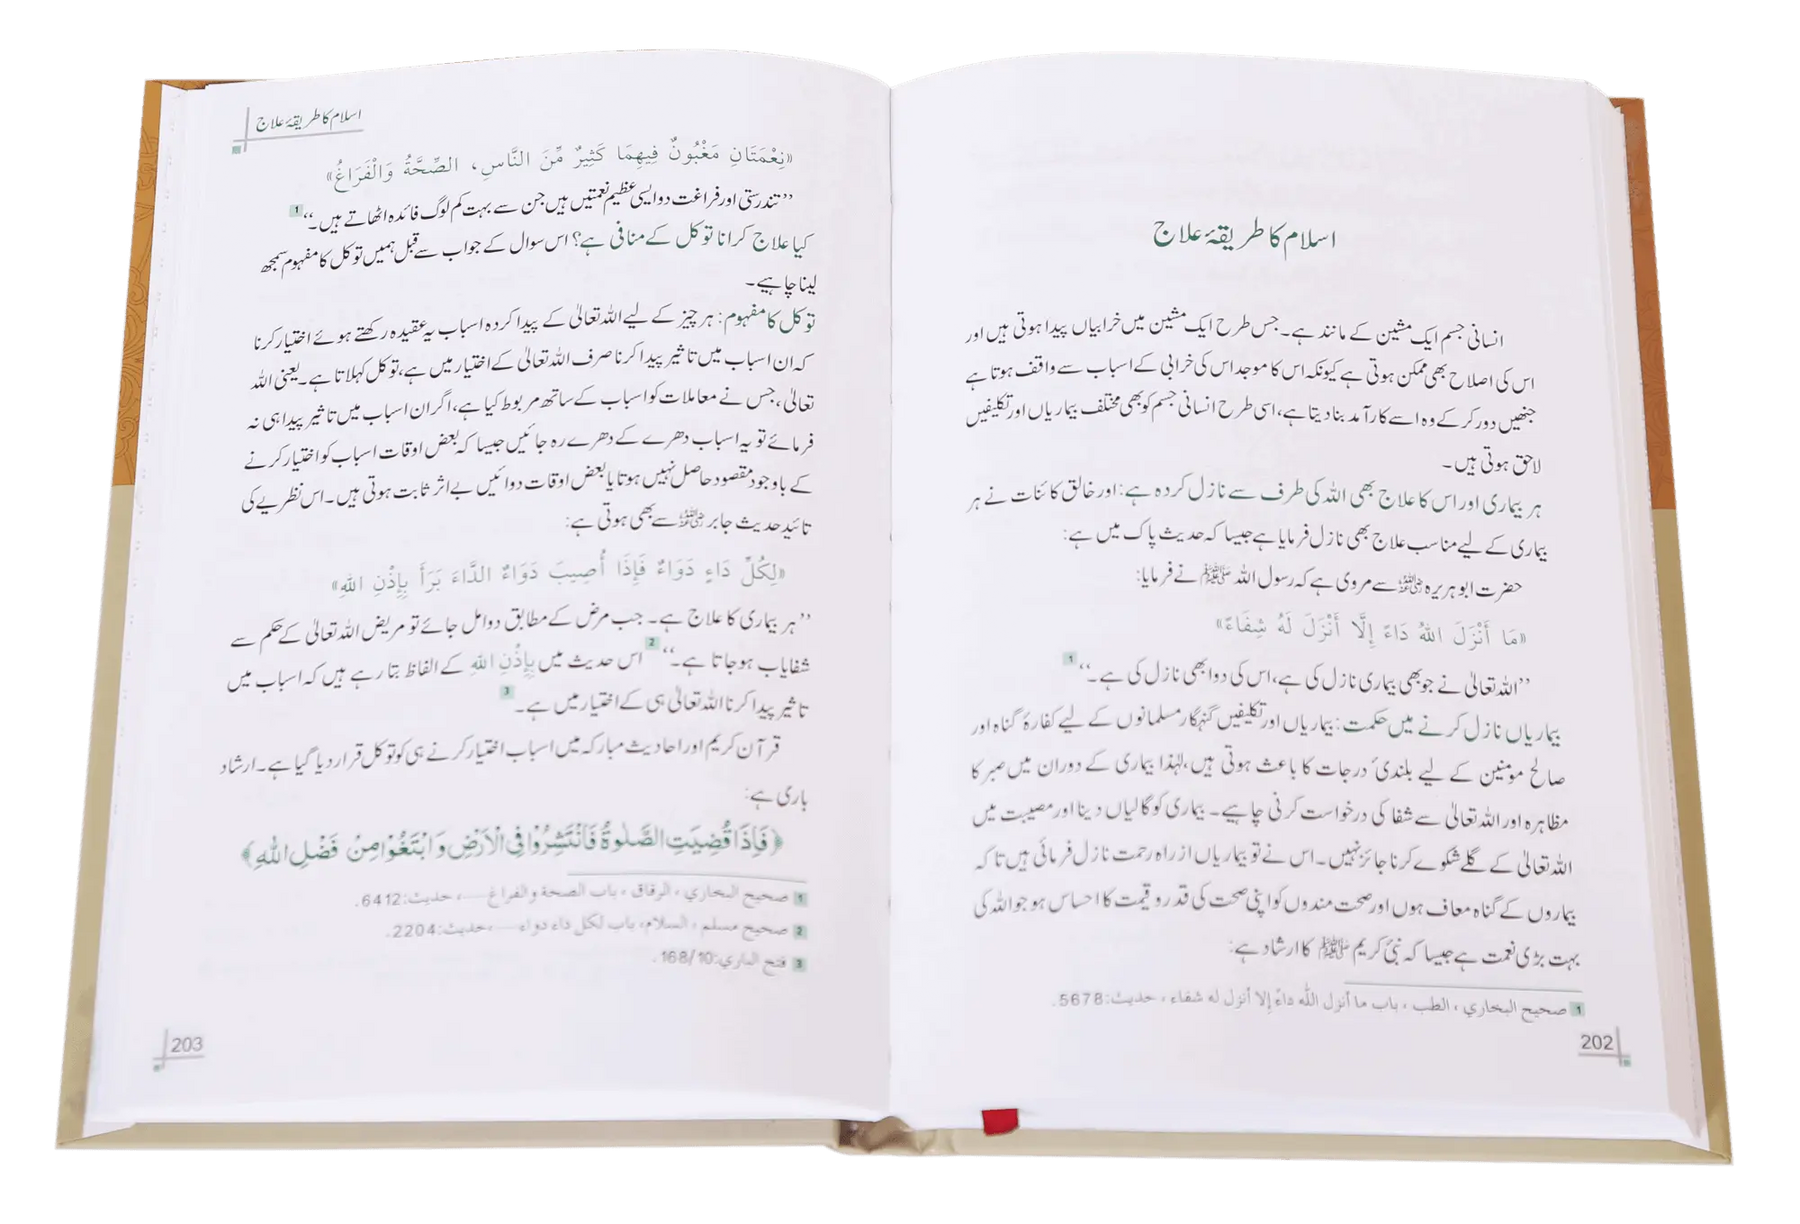 اسلام کا طریقۂ علاج
انسانی جسم ایک مشین کے مانند ہے۔ جس طرح ایک مشین میں خرابیاں پیدا ہوتی ہیں اور
اس کی اصلاح بھی ممکن ہوتی ہے کیونکہ اس کا موجد اس کی خرابی کے اسباب سے واقف ہوتا ہے
جنھیں دور کر کے وہ اسے کارآمد بنا دیتا ہے، اسی طرح انسانی جسم کو بھی مختلف بیماریاں اور تکلیفیں
لاحق ہوتی ہیں۔
ہر بیماری اور اس کا علاج بھی اللہ کی طرف سے نازل کردہ ہے: اور خالق کائنات نے ہر
بیماری کے لیے مناسب علاج بھی نازل فرمایا ہے جیسا کہ حدیث پاک میں ہے:
حضرت ابو ہریرہ رضی اللہ عنہ سے مروی ہے کہ رسول اللہ ﷺ نے فرمایا:
«مَا أَنْزَلَ اللهُ دَاءً إِلَّا أَنْزَلَ لَهُ شِفَاءً»
’’اللہ تعالیٰ نے جو بھی بیماری نازل کی ہے، اس کی دوا بھی نازل کی ہے۔‘‘ 1
بیماریاں نازل کرنے میں حکمت: بیماریاں اور تکلیفیں گنہگار مسلمانوں کے لیے کفارۂ گناہ اور
صالح مومنین کے لیے بلندیٔ درجات کا باعث ہوتی ہیں، لہٰذا بیماری کے دوران میں صبر کا
مظاہرہ اور اللہ تعالیٰ سے شفا کی درخواست کرنی چاہیے۔ بیماری کو گالیاں دینا اور مصیبت میں
اللہ تعالیٰ کے گلے شکوے کرنا جائز نہیں۔ اس نے تو بیماریاں از راہ رحمت نازل فرمائی ہیں تا کہ
بیماروں کے گناہ معاف ہوں اور صحت مندوں کو اپنی صحت کی قدر و قیمت کا احساس ہو جو اللہ کی
بہت بڑی نعمت ہے جیسا کہ نبیٔ کریم ﷺ کا ارشاد ہے:
1 صحيح البخاري، الطب، باب ما أنزل الله داءً إلا أنزل له شفاء، حديث: 5678.
202
اسلام کا طریقۂ علاج
«نِعْمَتَانِ مَغْبُونٌ فِيهِمَا كَثِيرٌ مِّنَ النَّاسِ، الصِّحَّةُ وَالْفَرَاغُ»
’’تندرستی اور فراغت دو ایسی عظیم نعمتیں ہیں جن سے بہت کم لوگ فائدہ اٹھاتے ہیں۔‘‘ 1
کیا علاج کرانا توکل کے منافی ہے؟ اس سوال کے جواب سے قبل ہمیں توکل کا مفہوم سمجھ
لینا چاہیے۔
توکل کا مفہوم: ہر چیز کے لیے اللہ تعالیٰ کے پیدا کردہ اسباب یہ عقیدہ رکھتے ہوئے اختیار کرنا
کہ ان اسباب میں تاثیر پیدا کرنا صرف اللہ تعالیٰ کے اختیار میں ہے، توکل کہلاتا ہے۔ یعنی اللہ
تعالیٰ، جس نے معاملات کو اسباب کے ساتھ مربوط کیا ہے، اگر ان اسباب میں تاثیر پیدا ہی نہ
فرمائے تو یہ اسباب دھرے کے دھرے رہ جائیں جیسا کہ بعض اوقات اسباب کو اختیار کرنے
کے باوجود مقصود حاصل نہیں ہوتا یا بعض اوقات دوائیں بے اثر ثابت ہوتی ہیں۔ اس نظریے کی
تائید حدیث جابر رضی اللہ عنہ سے بھی ہوتی ہے:
«لِكُلِّ دَاءٍ دَوَاءٌ فَإِذَا أُصِيبَ دَوَاءُ الدَّاءِ بَرَأَ بِإِذْنِ اللهِ»
’’ہر بیماری کا علاج ہے۔ جب مرض کے مطابق دوا مل جائے تو مریض اللہ تعالیٰ کے حکم سے
شفایاب ہو جاتا ہے۔‘‘ 2 اس حدیث میں بِإِذْنِ اللهِ کے الفاظ بتا رہے ہیں کہ اسباب میں
تاثیر پیدا کرنا اللہ تعالیٰ ہی کے اختیار میں ہے۔ 3
قرآن کریم اور احادیث مبارکہ میں اسباب اختیار کرنے ہی کو توکل قرار دیا گیا ہے۔ ارشاد
باری ہے:
﴿فَاِذَا قُضِيَتِ الصَّلٰوةُ فَانْتَشِرُوْا فِي الْاَرْضِ وَابْتَغُوْا مِنْ فَضْلِ اللهِ﴾
1 صحيح البخاري، الرقاق، باب الصحة والفراغ....، حديث: 6412.
2 صحيح مسلم، السلام، باب لكل داء دواء....، حديث: 2204.
3 فتح الباري: 168/10.
203